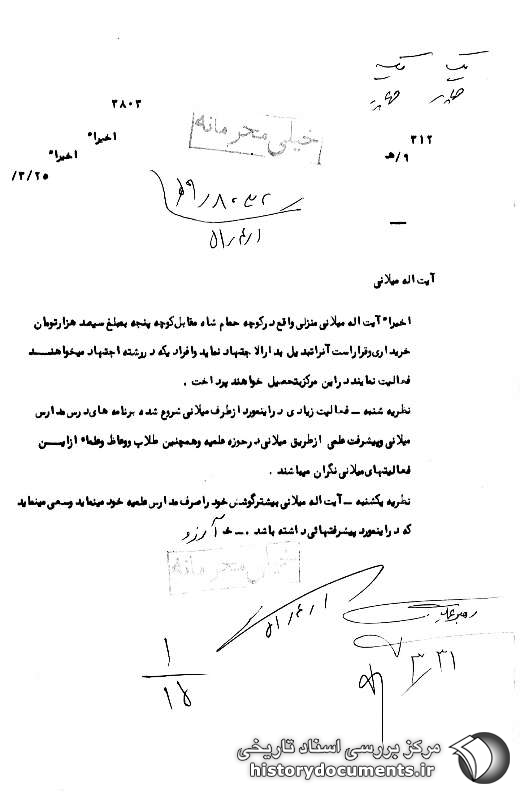 ۲۸۰۳
خیلی محرمانه
اخیرا"
۳۱۲
اخیرا"
۹/هـ
/۳/۲۵
۵۱/۴/۱
آیت اله میلانی
اخیرا" آیت اله میلانی منزلی واقع در کوچه حمام شاه مقابل کوچه پنجه بمبلغ سیصد هزار تومان
خریداری و قرار است آنرا تبدیل بدارالاجتهاد نماید و افرادیکه در رشته اجتهاد میخواهنـــد
فعالیت نمایند در این مرکز بتحصیل خواهند پرداخت .
نظریه شنبه ــ فعالیت زیادی در اینمورد از طرف میلانی شروع شده برنامه های درس مدارس
میلانی و پیشرفت علمی از طریق میلانی در حوزه علمیه و همچنین طلاب و وعاظ و علماء از ایـــن
فعالیتهای میلانی نگران میباشند .
نظریه یکشنبه ــ آیت اله میلانی بیشتر کوشش خود را صرف مدارس علمیه خود مینماید و سعی مینماید
که در اینمورد پیشرفتهائی داشته باشد .ــ خ آرزو
خیلی محرمانه
۵۱/۴/۱
۳/۳۱
۱
۱۵
مرکز بررسی اسناد تاریخی
historydocuments.ir